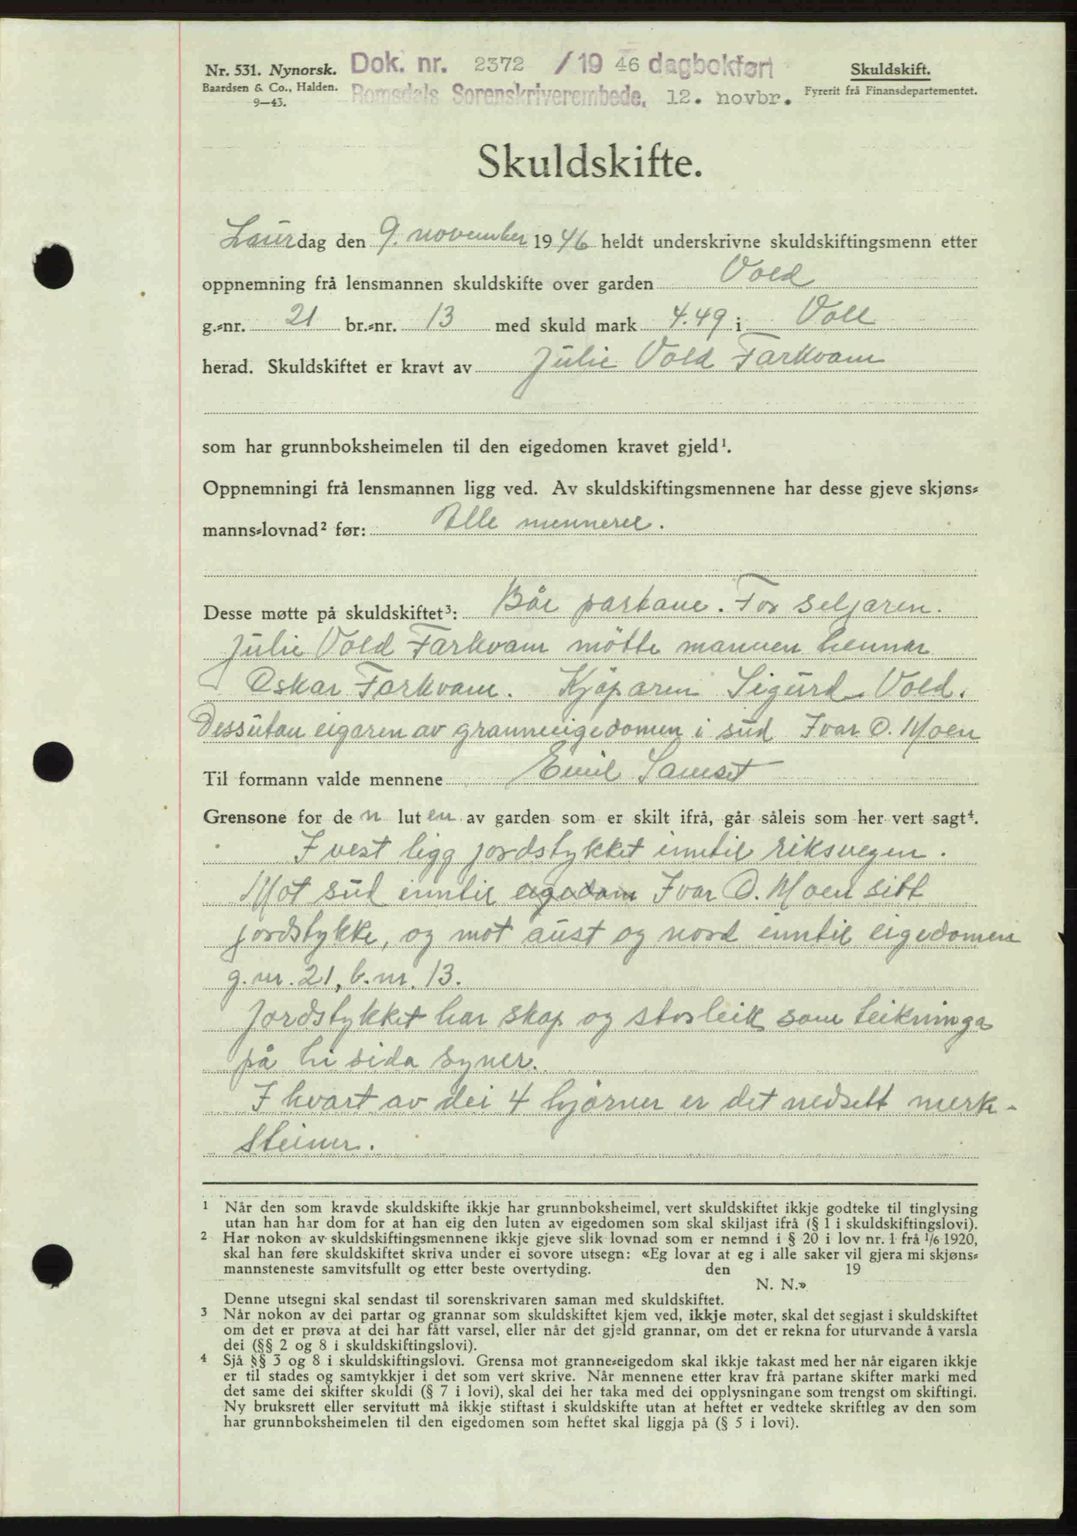 Nr. 531. Nynorsk.
Baardsen & Co., Halden.
9—43.
Dok. nr. 2372 /19 46 dagbokført
Romsdals Sorenskriverembede, 12. novbr.
Skuldskift.
Fyrerit frå Finansdepartementet.
Skuldskifte.
Laurdag den 9. november 1946 heldt underskrivne skuldskiftingsmenn etter
oppnemning frå lensmannen skuldskifte over garden Vold
g.=nr. 21 br.=nr. 13 med skuld mark 4.49 i Voll
herad. Skuldskiftet er kravt av Julie Vold Farkvam
som har grunnboksheimelen til den eigedomen kravet gjeld¹.
Oppnemningi frå lensmannen ligg ved. Av skuldskiftingsmennene har desse gjeve skjøns=
manns=lovnad² før: Alle mennene.
Desse møtte på skuldskiftet³: Båe partane. For seljaren.
Julie Vold Farkvam møtte mannen hennar
Oskar Farkvam. Kjøparen Sigurd Vold.
Dessutan eigaren av granneeigedomen i sud Ivar O. Moen
Til formann valde mennene Emil Samset
Grensone for de n lut en av garden som er skilt ifrå, går såleis som her vert sagt⁴.
I vest ligg jordstykket inntil riksvegen.
Mot sud inntil eigedom Ivar O. Moen sitt
jordstykke, og mot aust og nord inntil eigedomen
g.nr. 21, b.nr. 13.
Jordstykket har skap og storleik som teikninga
på hi sida syner.
I kvart av dei 4 hjørner er det nedsett merk-
steiner.
¹ Når den som kravde skuldskifte ikkje har grunnboksheimel, vert skuldskiftet ikkje godteke til tinglysing
utan han har dom for at han eig den luten av eigedomen som skal skiljast ifrå (§ 1 i skuldskiftingslovi).
² Har nokon av skuldskiftingsmennene ikkje gjeve slik lovnad som er nemnd i § 20 i lov nr. 1 frå 1/6 1920,
skal han føre skuldskiftet skriva under ei sovore utsegn: «Eg lovar at eg i alle saker vil gjera mi skjøns=
mannsteneste samvitsfullt og etter beste overtyding. den 19
N. N.»
Denne utsegni skal sendast til sorenskrivaren saman med skuldskiftet.
³ Når nokon av dei partar og grannar som skuldskiftet kjem ved, ikkje møter, skal det segjast i skuldskiftet
om det er prøva at dei har fått varsel, eller når det gjeld grannar, om det er rekna for uturvande å varsla
dei (§§ 2 og 8 i skuldskiftingslovi).
⁴ Sjå §§ 3 og 8 i skuldskiftingslovi. Grensa mot granne=eigedom skal ikkje takast med her når eigaren ikkje
er til stades og samtykkjer i det som vert skrive. Når mennene etter krav frå partane skifter marki med
det same dei skifter skuldi (§ 7 i lovi), skal dei her taka med dei opplysningane som trengst om skiftingi.
Ny bruksrett eller servitutt må ikkje stiftast i skuldskifte utan at heftet er vedteke skriftleg av den som
har grunnboksheimelen til den eigedomen som heftet skal liggja på (§ 5 i lovi).